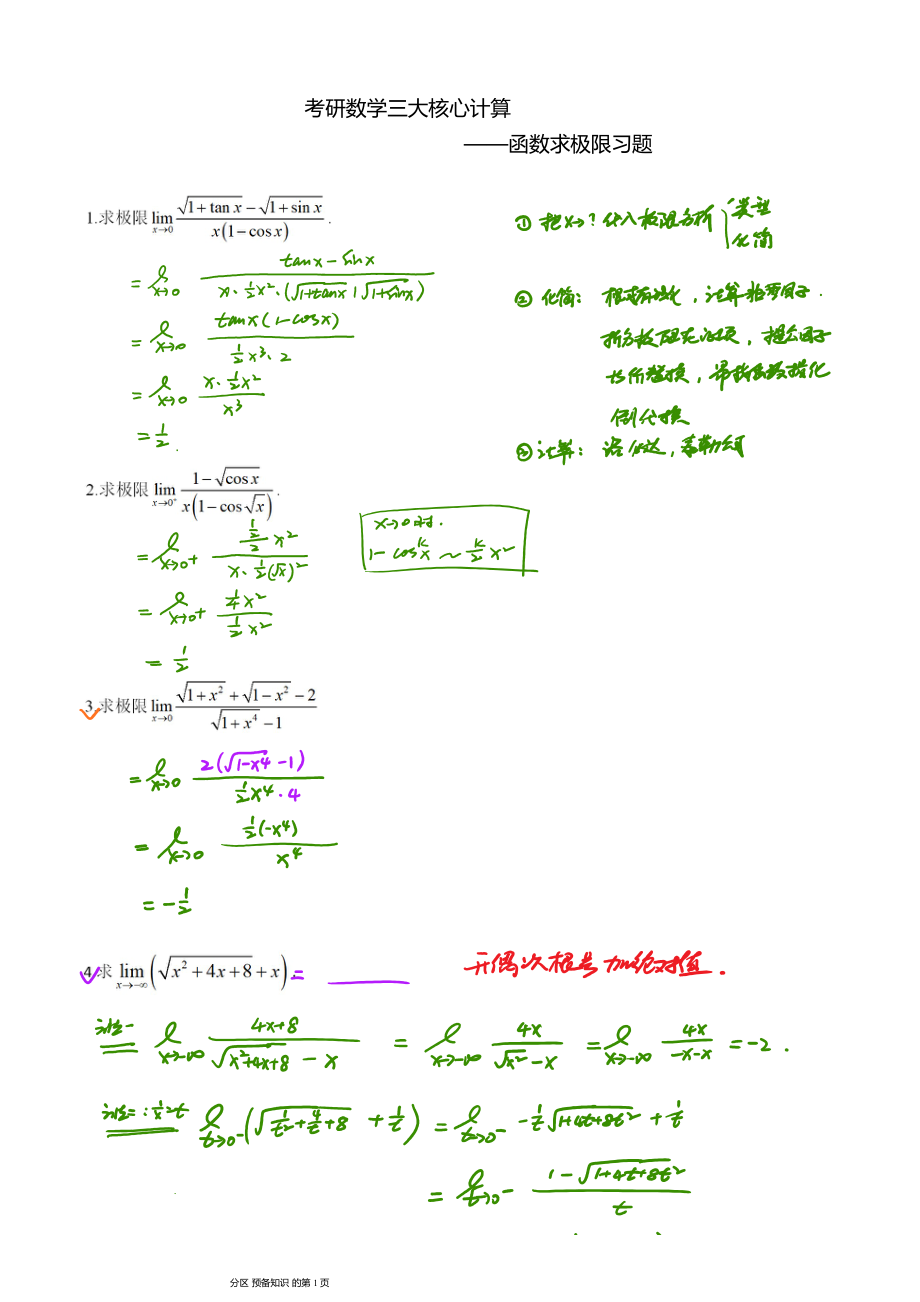 考研数学三大核心计算
——函数求极限习题
1.求极限 lim x→0 (√(1+tan x) − √(1+sin x)) / (x(1−cos x)) .
= l x→0 (tanx − sinx) / (x · ½x² · (√(1+tanx) + √(1+sinx)))
= l x→0 (tanx(1−cosx)) / (½x³ · 2)
= l x→0 (x · ½x²) / x³
= ½ .
① 把x→? 代入极限分析 { 类型 化简
② 化简: 根式有理化, 计算非零因子.
拆分极限存在的项, 提公因子
等价替换, 幂指函数指数化
倒代换
③ 计算: 洛必达, 泰勒公式
2.求极限 lim x→0⁺ (1−√(cos x)) / (x(1−cos√x)) .
= l x→0+ (½/2 x²) / (x · ½(√x)²)
= l x→0+ (¼x²) / (½x²)
= ½
x→0时.
1−cosᵏx ~ k/2 x²
3.求极限 lim x→0 (√(1+x²) + √(1−x²) − 2) / (√(1+x⁴) − 1)
= l x→0 2(√(1−x⁴) −1) / (½x⁴ · 4)
= l x→0 ½(−x⁴) / x⁴
= −½
4.求 lim x→−∞ (√(x²+4x+8) + x) . = ____
开偶次根号加绝对值.
法一 l x→−∞ (4x+8) / (√(x²+4x+8) − x) = l x→−∞ 4x / (√x² − x) = l x→−∞ 4x / (−x−x) = −2 .
法二: 1/x=t l t→0− (√(1/t²+4/t+8) + 1/t) = l t→0− −1/t √(1+4t+8t²) + 1/t
= l t→0− (1−√(1+4t+8t²)) / t
分区 预备知识 的第 1 页